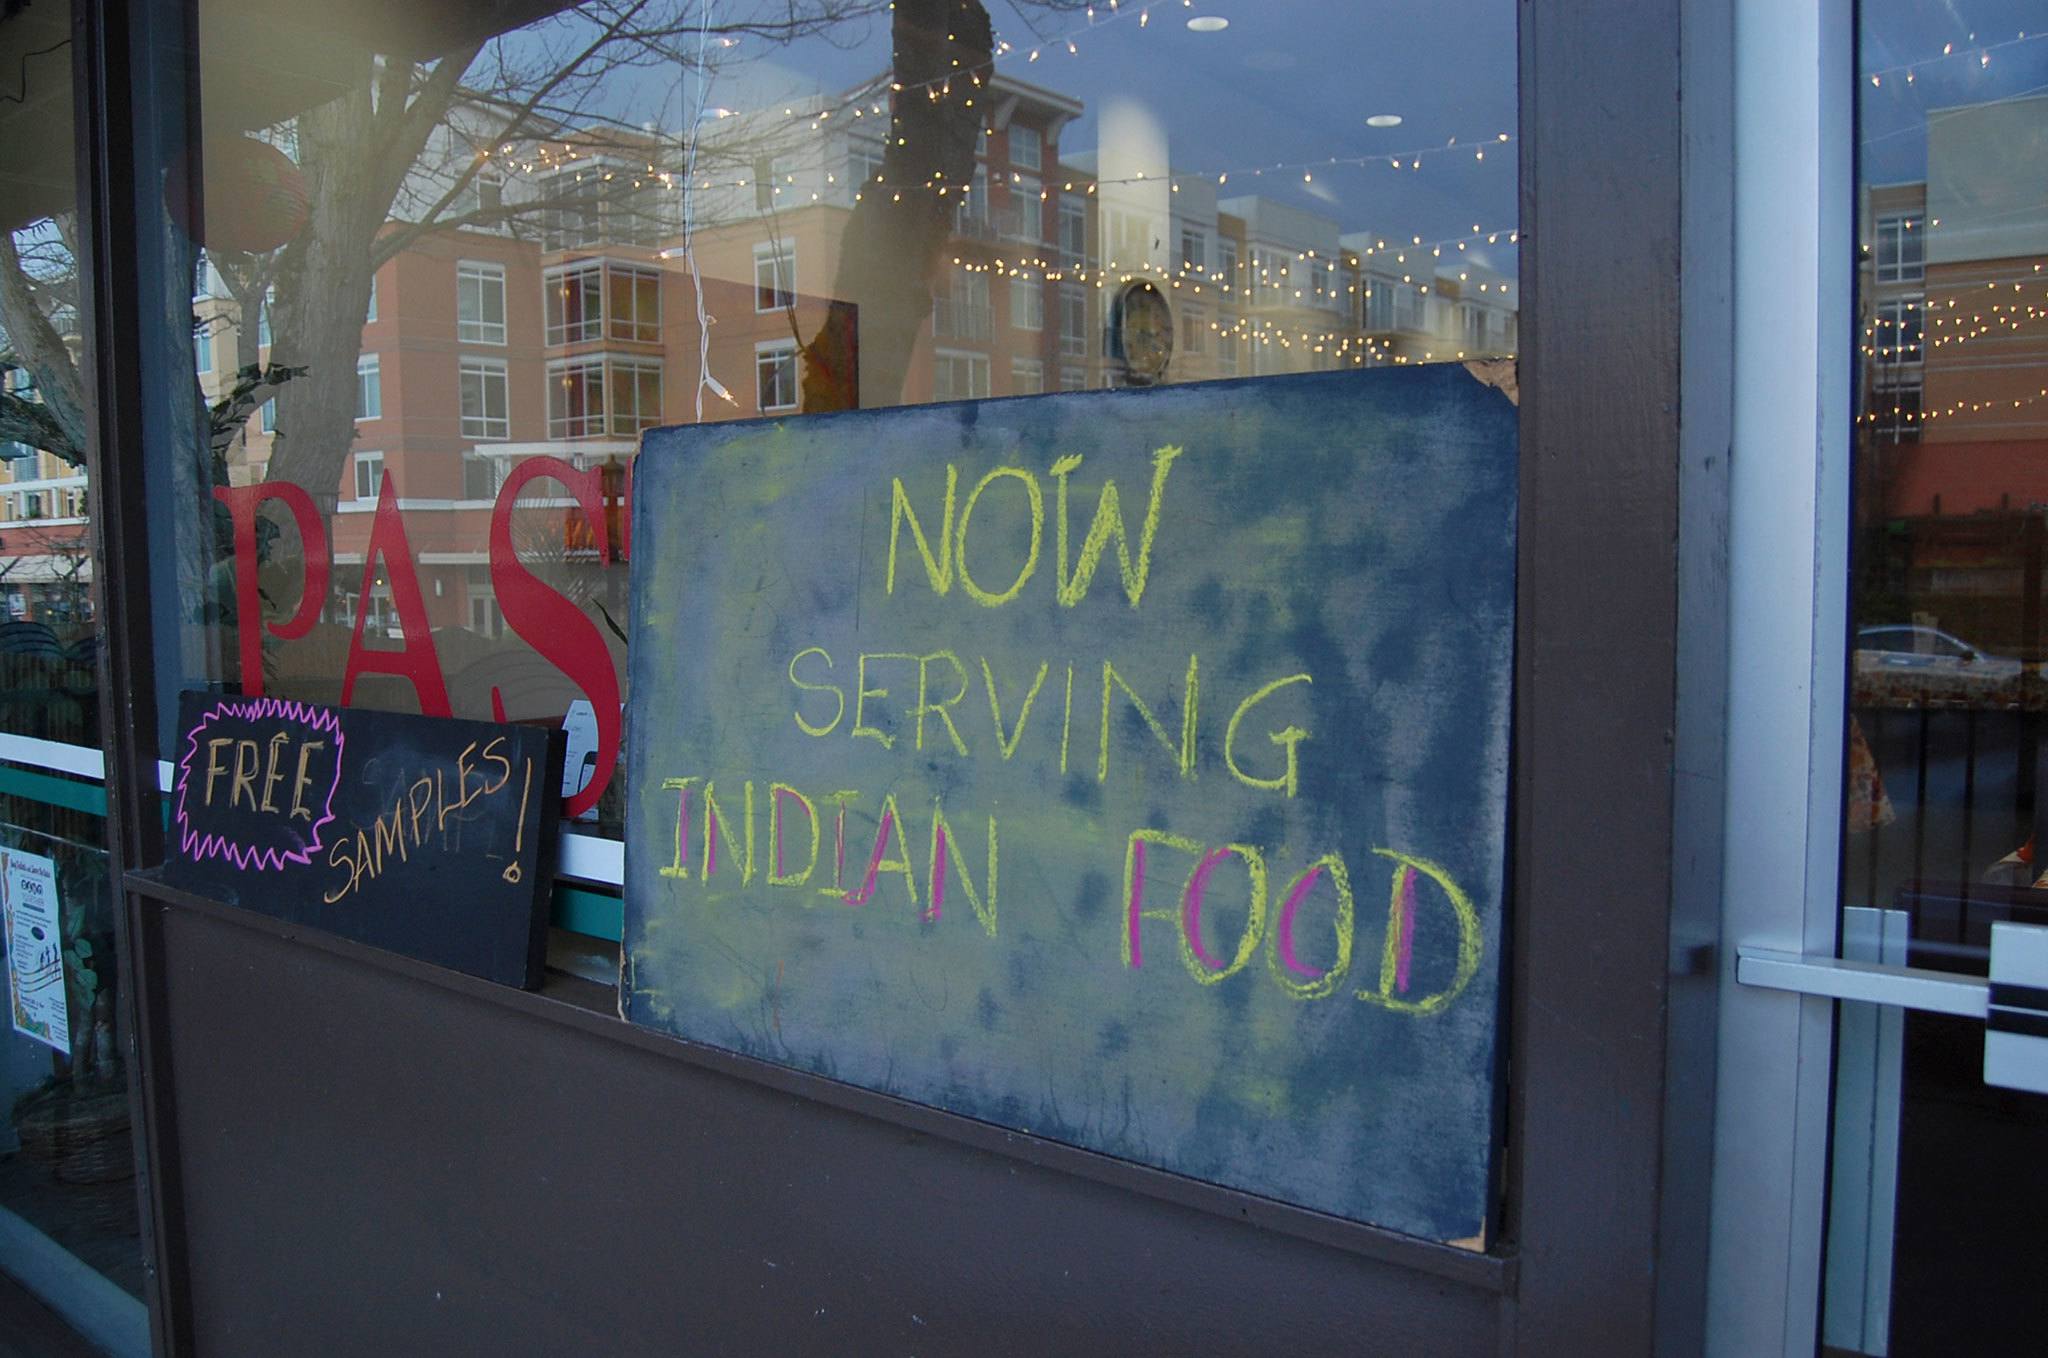 PAS
FREE
SAMPLES!
NOW
SERVING
INDIAN FOOD